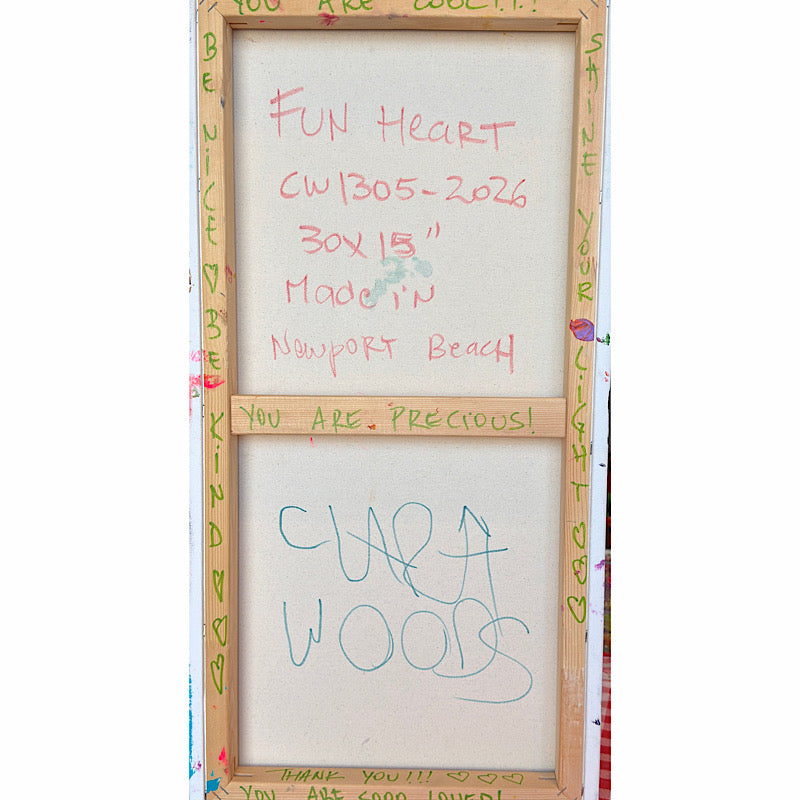 YOU ARE COOL!!!
BE NiCE ♡ BE KiND ♡ ♡ ♡
FUN HeaRT
CW1305-2026
30x15"
Made iN
NewpoRT BeacH
SHiNE YOUR LiGHT ♡ ♡ ♡
YOU ARE PRECiOUS!
CURA
WOODS
THANK YOU!!! ♡ ♡ ♡
YOU ARE LOVED!